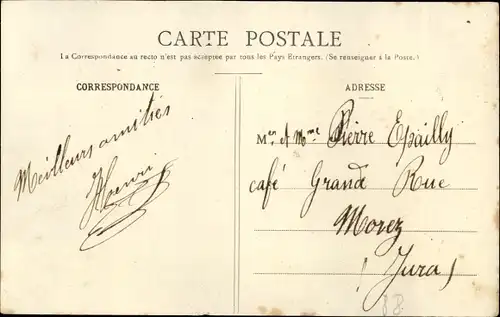 CARTE POSTALE
La Correspondance au recto n'est pas acceptée par tous les Pays Etrangers. (Se renseigner à la Poste.)
CORRESPONDANCE
Meilleurs amitiés
Henri
ADRESSE
Mr et Mme Pierre Epailly
café Grande Rue
Morez
(Jura)